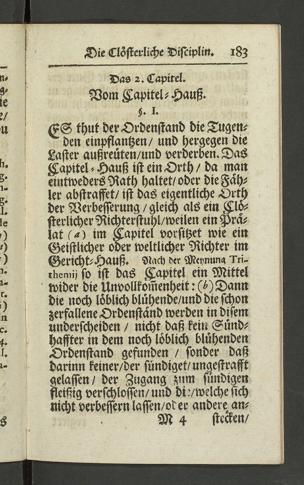 Die Clösterliche Disciplin. 183
Das 2. Capitel.
Vom Capitel-Hauß.
§. I.
ES thut der Ordenstand die Tugen-
den einpflantzen/ und hergegen die
Laster außreüten/ und verderben. Das
Capitel-Hauß ist ein Orth/ da man
eintweders Rath haltet/ oder die Fäh-
ler abstraffet/ ist das eigentliche Orth
der Verbesserung/ gleich als ein Clö-
sterlicher Richterstuhl/ weilen ein Prä-
lat (a) im Capitel vorsitzet wie ein
Geistlicher oder weltlicher Richter im
Gericht-Hauß. Nach der Meynung Tri-
themij so ist das Capitel ein Mittel
wider die Unvollkomenheit: (b) Dann
die noch löblich blühende/ und die schon
zerfallene Ordenständ werden in disem
underscheiden/ nicht daß kein Sünd-
haffter in dem noch löblich blühenden
Ordenstand gefunden/ sonder daß
darinn keiner/ der sündiget/ ungestrafft
gelassen/ der Zugang zum sündigen
fleißig verschlossen/ und die/ welche sich
nicht verbessern lassen/ oder andere an-
M 4 stecken/